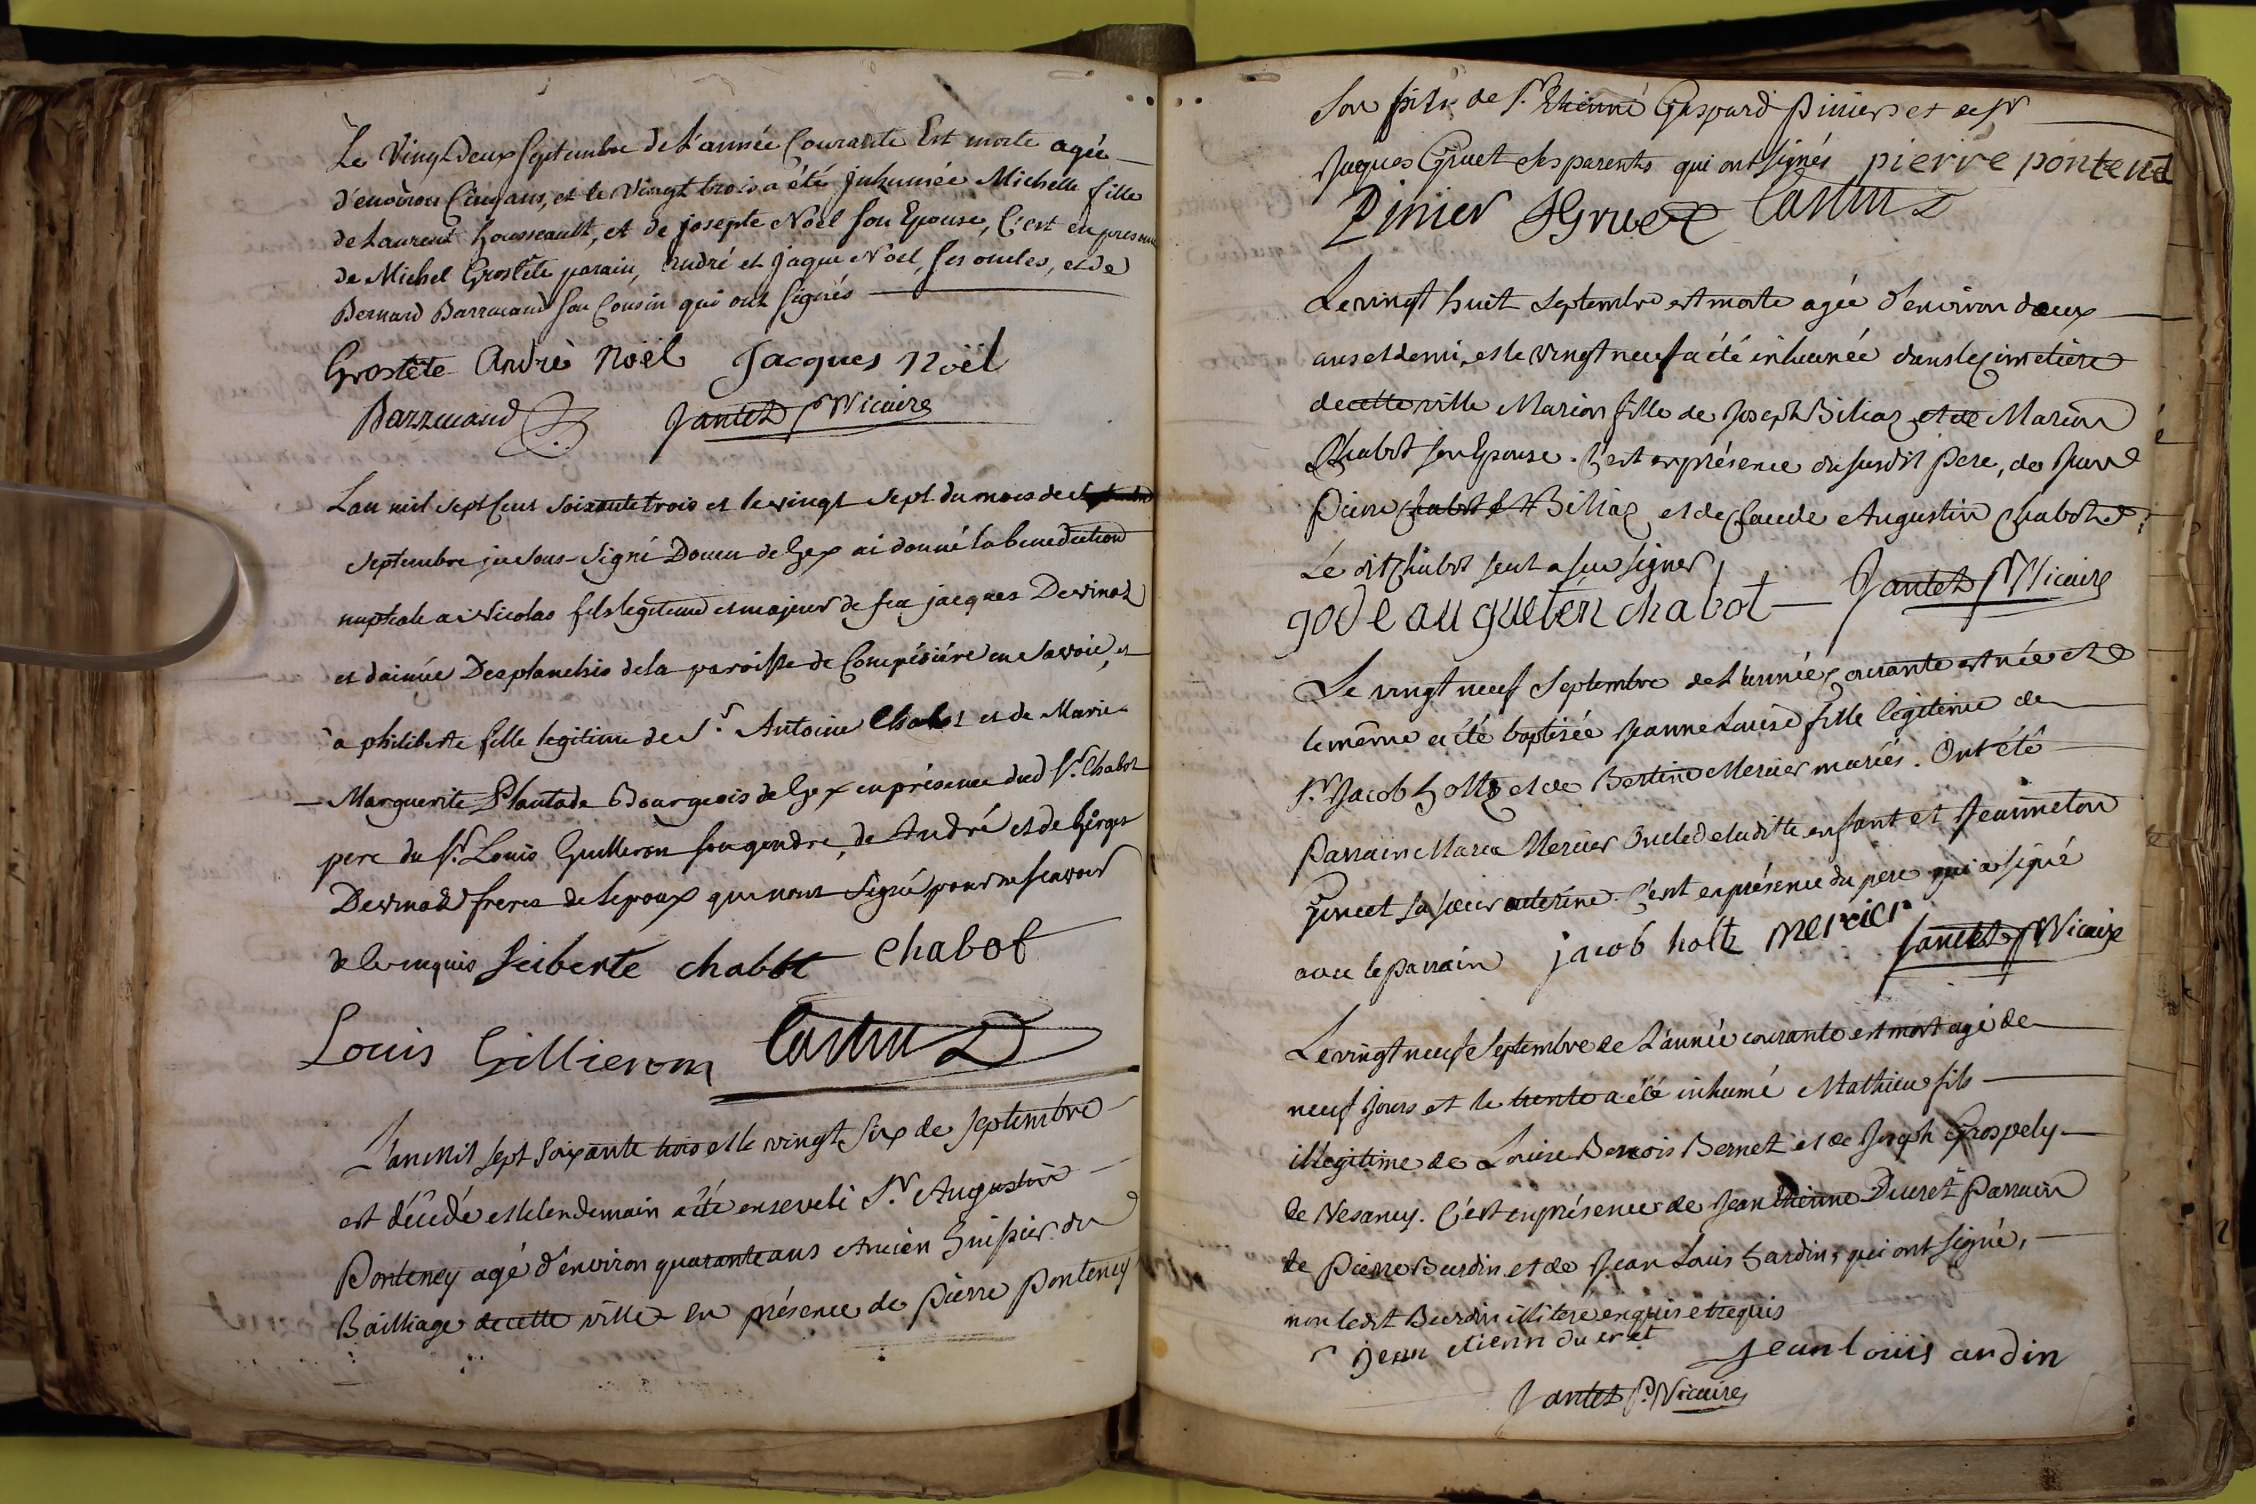 Le Vingt Deux Septembre de L'année Courante Est morte agée
d'environ Cinq ans, et le Vingt trois a été Inhumée Michelle fille
de Laurent housseault, et de josepte Noël son Epouse, C'est en presence
de Michel Grostête parain, André et Jaque Noël, ses oncles, et de
Bernard Barrucand son Cousin qui ont signés
Grostête André Noël Jacques Noël
Barrucand Jantet Pr Vicaire
Lan mil sept Cent Soixante trois et le vingt sept du mois de
Septembre je Sous-Signé Doien de Gex ai donné la benediction
nuptiale a Nicolas fils legitime et majeur de feu jacques Devinaz
et daimée Desplanchis de la paroisse de Compésiére en Savoie, et
a philiberte fille legitime de Sr. Antoine Chabot et de Marie
Marguerite Plantade Bourgeois de Gex en présence dud Sr. Chabot
pere du Sr. Louis Guilleron son gendre, de André et de
Devinaz freres de lepoux qui nont Signé pour ne scavoir
de ce enquis feiberte chabot Chabot
Louis Gillieron Castin D
Lan mil sept Soixante trois et le vingt six de Septembre
est décédé et le lendemain a été enseveli Sr. Augustin
Ponteney agé d'environ quarante ans Ancien huissier du
Bailliage de cette ville en présence de Pierre Ponteney
Son frere de Sr. Etienne Gaspard Pinier et de Sr
Jaques Gruet ses parents qui ont signés pierre pontened
Pinier JGruet Castin D
Le vingt huit Septembre est morte agée d'environ deux
ans et demi, et le vingt neuf a été inhumée dans le Cimetiere
de cette ville Marion fille de Joseph Biliaz et de Marion
Chabot son Epouse. C'est en présence du susdit Pere, de Jean
Pierre Biliaz et de Claude Augustin Chabot
Le dit Chabot seul a su signer
gode augutin chabot Jantet Pr Vicaire
Le vingt neuf Septembre de L'année courante est née et
le même a été baptisée Jeanne Louise fille legitime de
Sr. Jacob holtz et de Bertine Mercier mariés. Ont été
Parrain Marca Mercier Oncle de la ditte enfant et Jeanneton
Gruet sa sœur uterine. C'est en présence du pere qui a signé
avec le parrain jacob holtz mercier Jantet Pr Vicaire
Le vingt neuf Septembre de L'année courante est mort agé de
neuf jours et le trente a été inhumé Mathieu fils
illegitime de Louise Benois Bernet et de Joseph Grospely
de Vesancy. C'est en présence de Jean Etienne Ducret Parrain
de Pierre Burdin et de Jean Louis hardin, qui ont signé,
non ledit Burdin illiteré enquis et requis
Jean etienn du cret Jean louis ardin
Jantet Pr. Vicaire